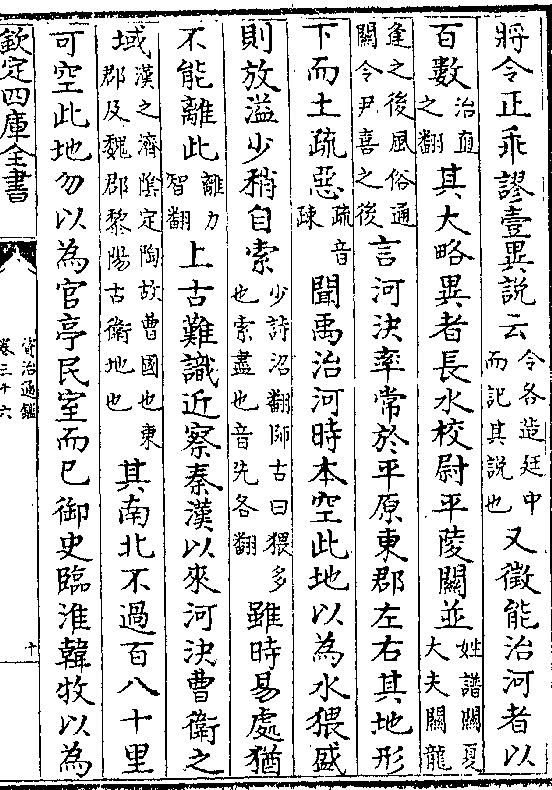 將令正乖謬壹異說云令各造廷中而記其說也又徵能治河者以
百數治直之翻其大略異者長水校尉平陵關並姓譜關夏大夫關龍
逄之後風俗通關令尹喜之後言河決率常於平原東郡左右其地形
下而土疏惡疏音疎聞禹治河時本空此地以為水猥盛
則放溢少稍自索少詩沼翻師古曰猥多也索盡也音先各翻雖時易處猶
不能離此離力智翻上古難識近察秦漢以來河決曹衛之
域漢之濟隂定陶故曹國也東郡及魏郡黎陽古衛地也其南北不過百八十里
可空此地勿以為官亭民室而已御史臨淮韓牧以為
欽定四庫全書
資治通鑑
卷三十六
十